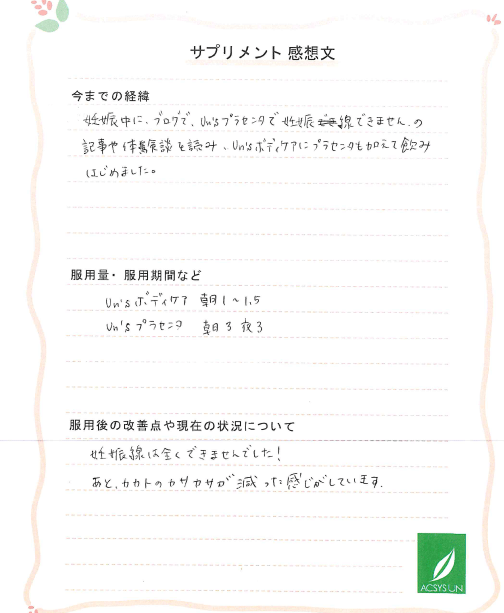 サプリメント 感想文
今までの経緯
妊娠中に、ブログで、Un'sプラセンタで妊娠線できません.の
記事や体験談を読み、Un'sボディケアにプラセンタも加えて飲み
はじめました。
服用量・服用期間など
Un'sボディケア 朝1〜1.5
Un'sプラセンタ 朝3 夜3
服用後の改善点や現在の状況について
妊娠線は全くできませんでした!
あと、カカトのカサカサが減った感じがしています.
ACSYSUN